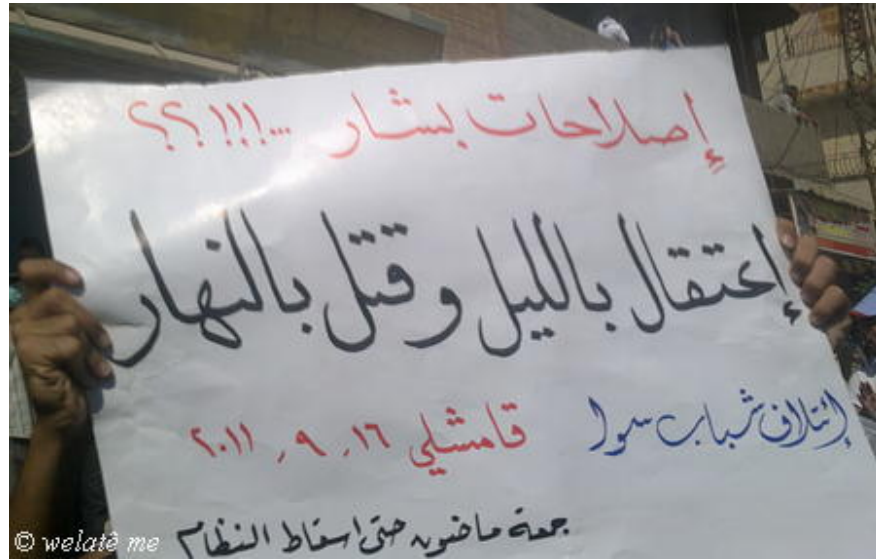 إصلاحات بشار ...!!!؟؟
إعتقال بالليل وقتل بالنهار
إئتلاف شباب سوا قامشلي ١٦, ٩, ٢٠١١
جمعة ماضون حتى اسقاط النظام
© welatê me